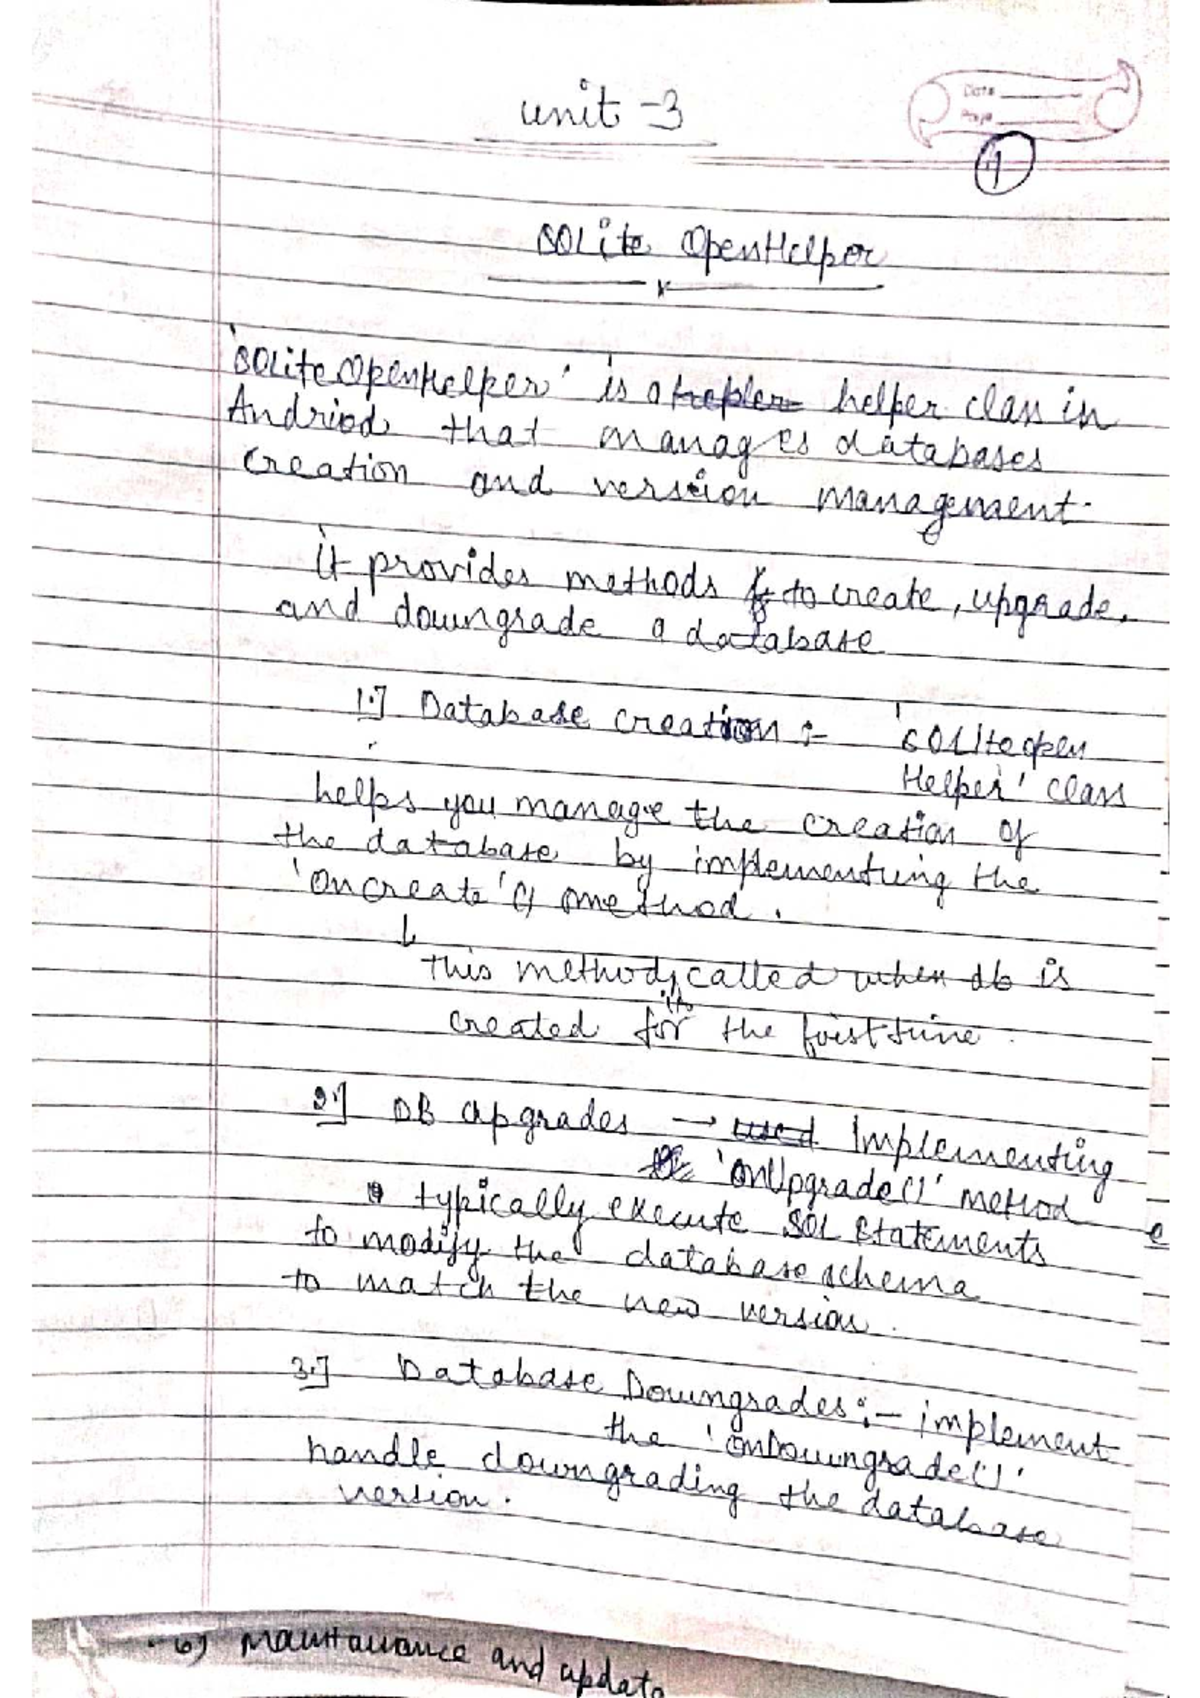 unit -3
Date
Page
1
SQLite OpenHelper
'SQLiteOpenHelper' is a hepler helper class in
Andriod that manages databases
creation and version management.
It provides methods to create, upgrade,
and downgrade a database
1.] Database creation :- 'SQLiteopen
Helper' class
helps you manage the creation of
the database by implementing the
'oncreate'() method.
↳
this method called when db is
its
created for the first time.
2.] DB upgrades → used Implementing
'onUpgrade()' method
typically execute SQL statements
to modify the database schema
to match the new version.
3.] Database Downgrades :- implement
the 'onDowngrade()'
handle downgrading the database
version.
6) Maintainance and update